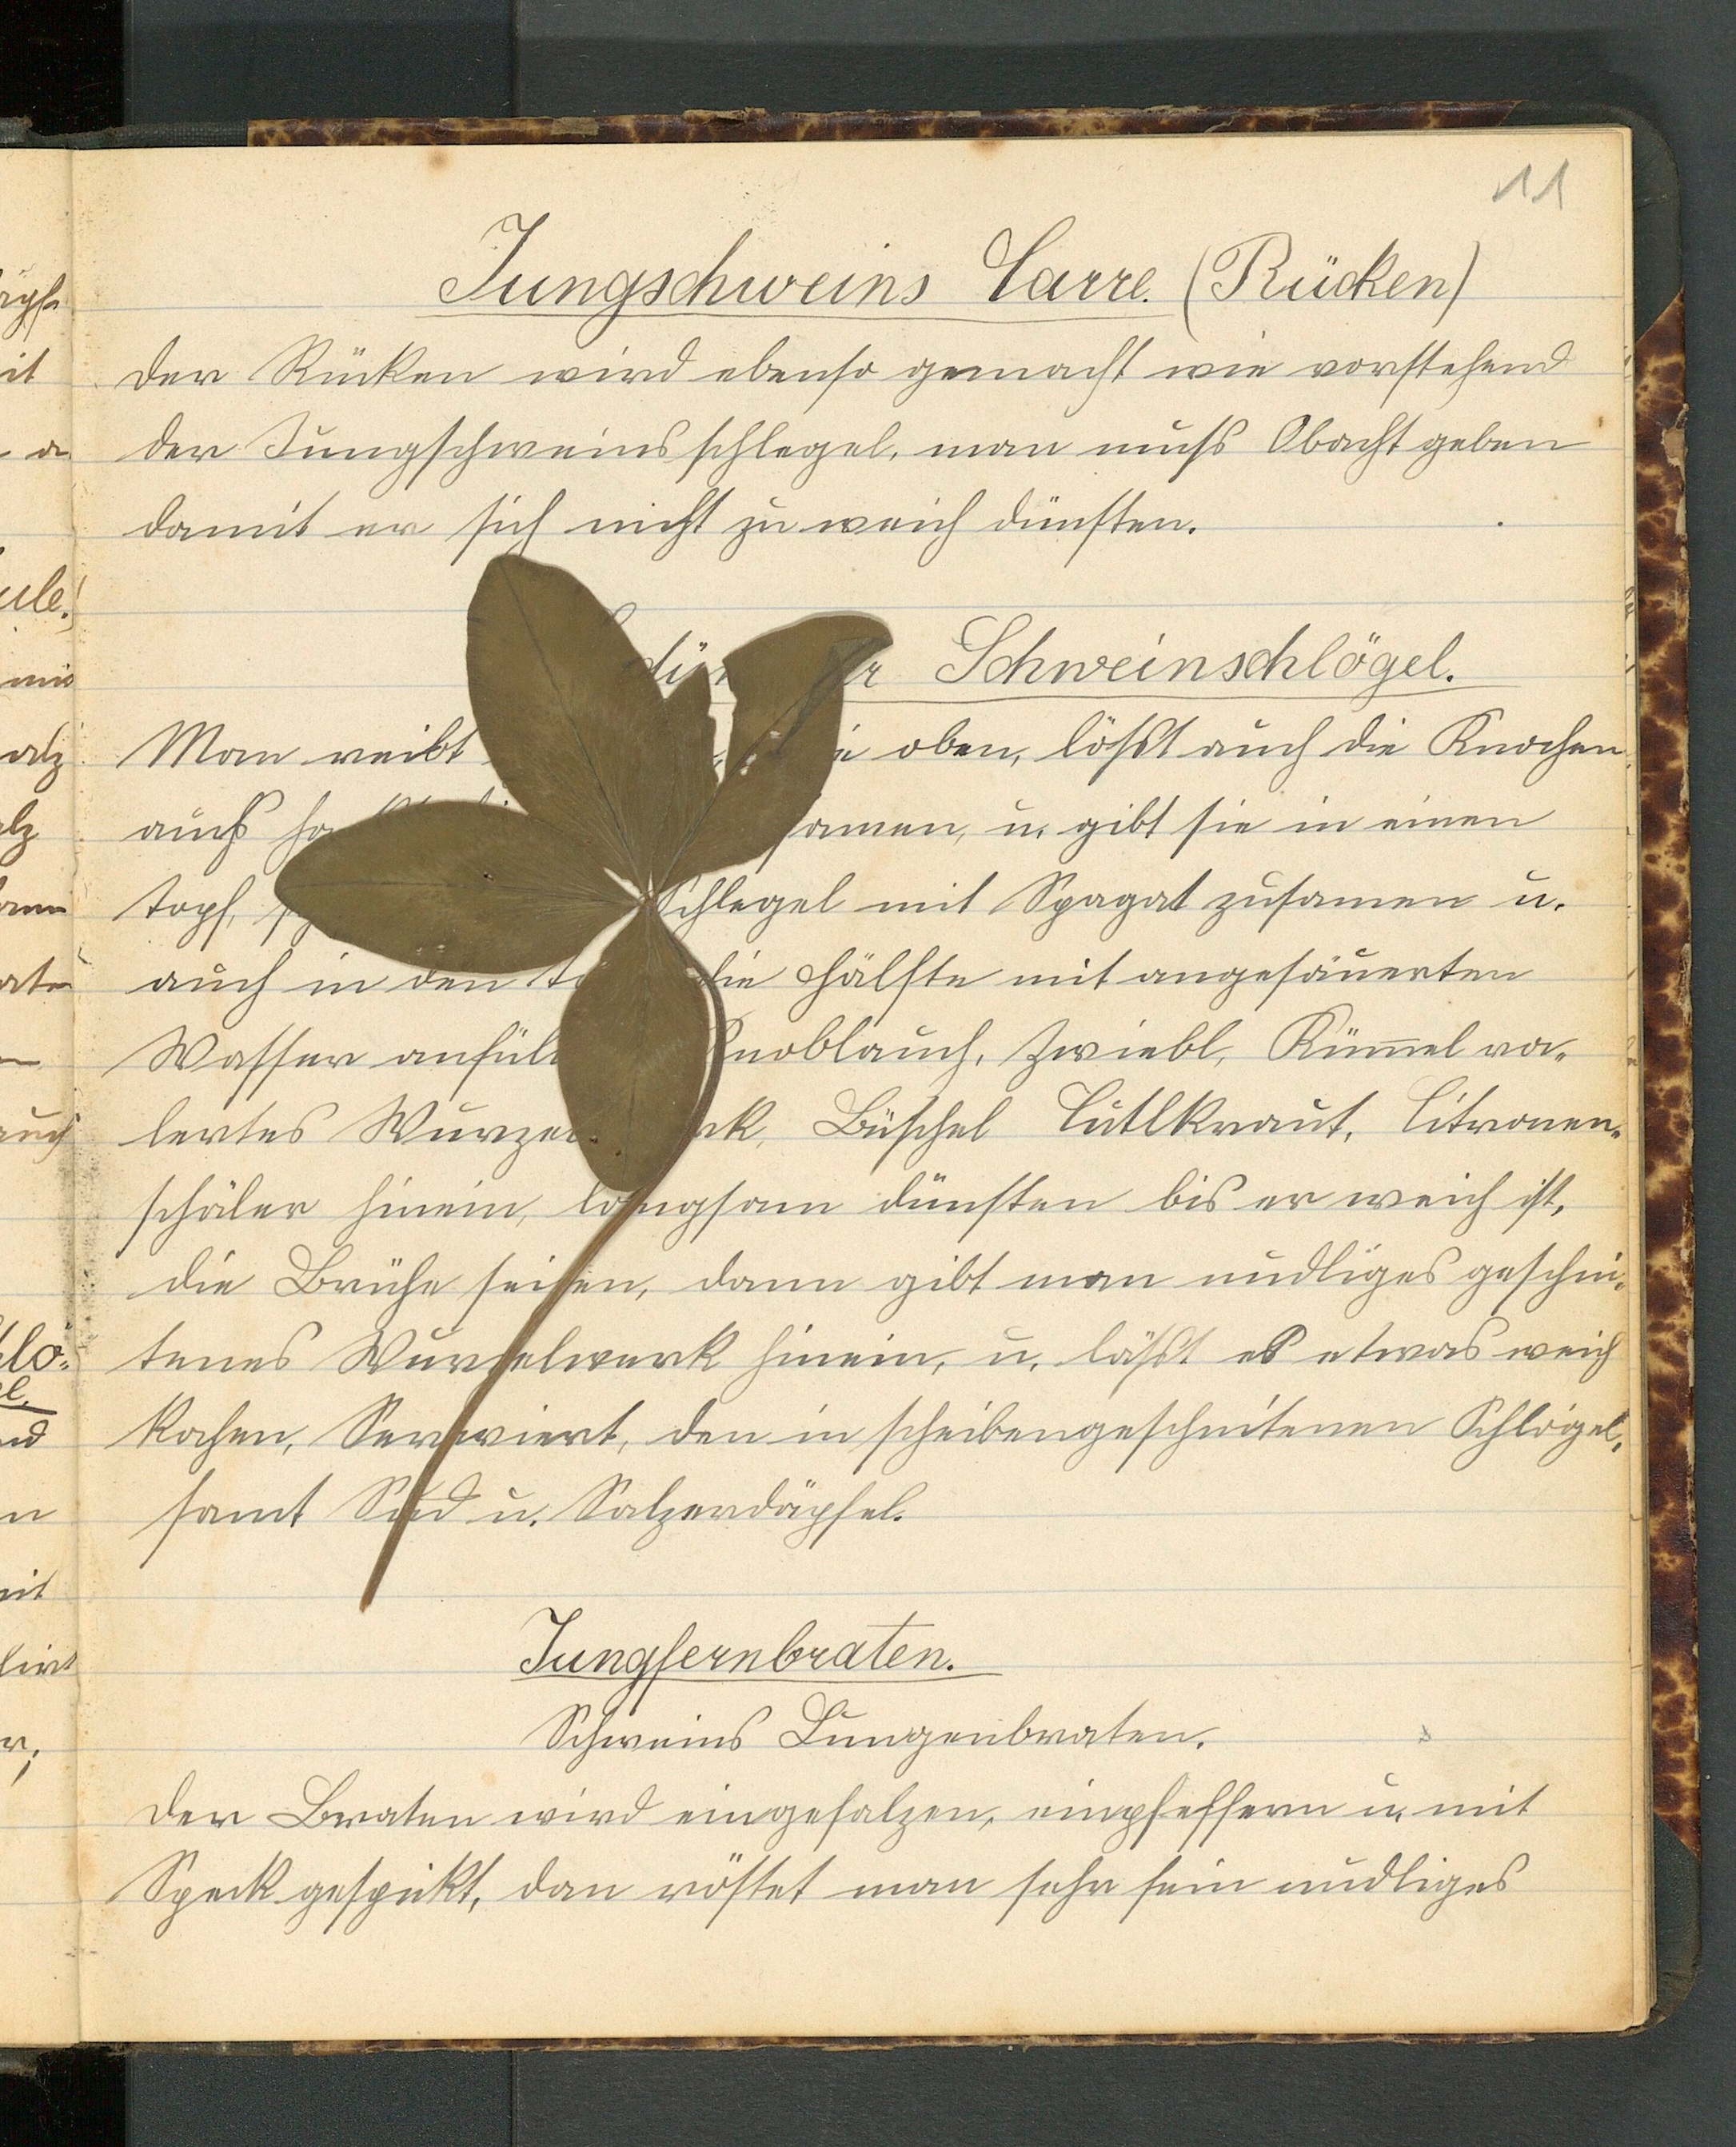 11
Jungschweins Carre. (Rücken)
Der Rücken wird ebenso gemacht wie vorstehend
der Jungschweinsschlegel, man muſs Obacht geben
damit er sich nicht zu weich dünsten.
Schweinschlögel.
Man reibt oben, lößt auch die Knochen
auch u. gibt sie in einen
topf, Schlegel mit Spagat zusamen u.
auch in den die Hälfte mit angesäuerten
Wasser Knoblauch, Zwiebl, Küm̅el va-
lertes Büschel Cutlkraut, Citronen-
schäler hinein, langsam dünsten bis er weich ist,
die Brühe seihen, dann gibt man nudliges geschni-
tenes Wurzelwerk hinein, u. läßt es etwas weich
kochen, Serwiert, den in scheibengeschnitenen Schlögel,
samt Sud u. Salzerdäpfel.
Jungfernbraten.
Schweins Lungenbraten.
Der Braten wird eingesalzen, einpfeffern u. mit
Speck gespickt, dan röstet man sehr fein nudliges